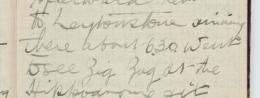 to Leytonstone arriving
there about 6.30. Went
to see Zig Zag at the
Hippodrome